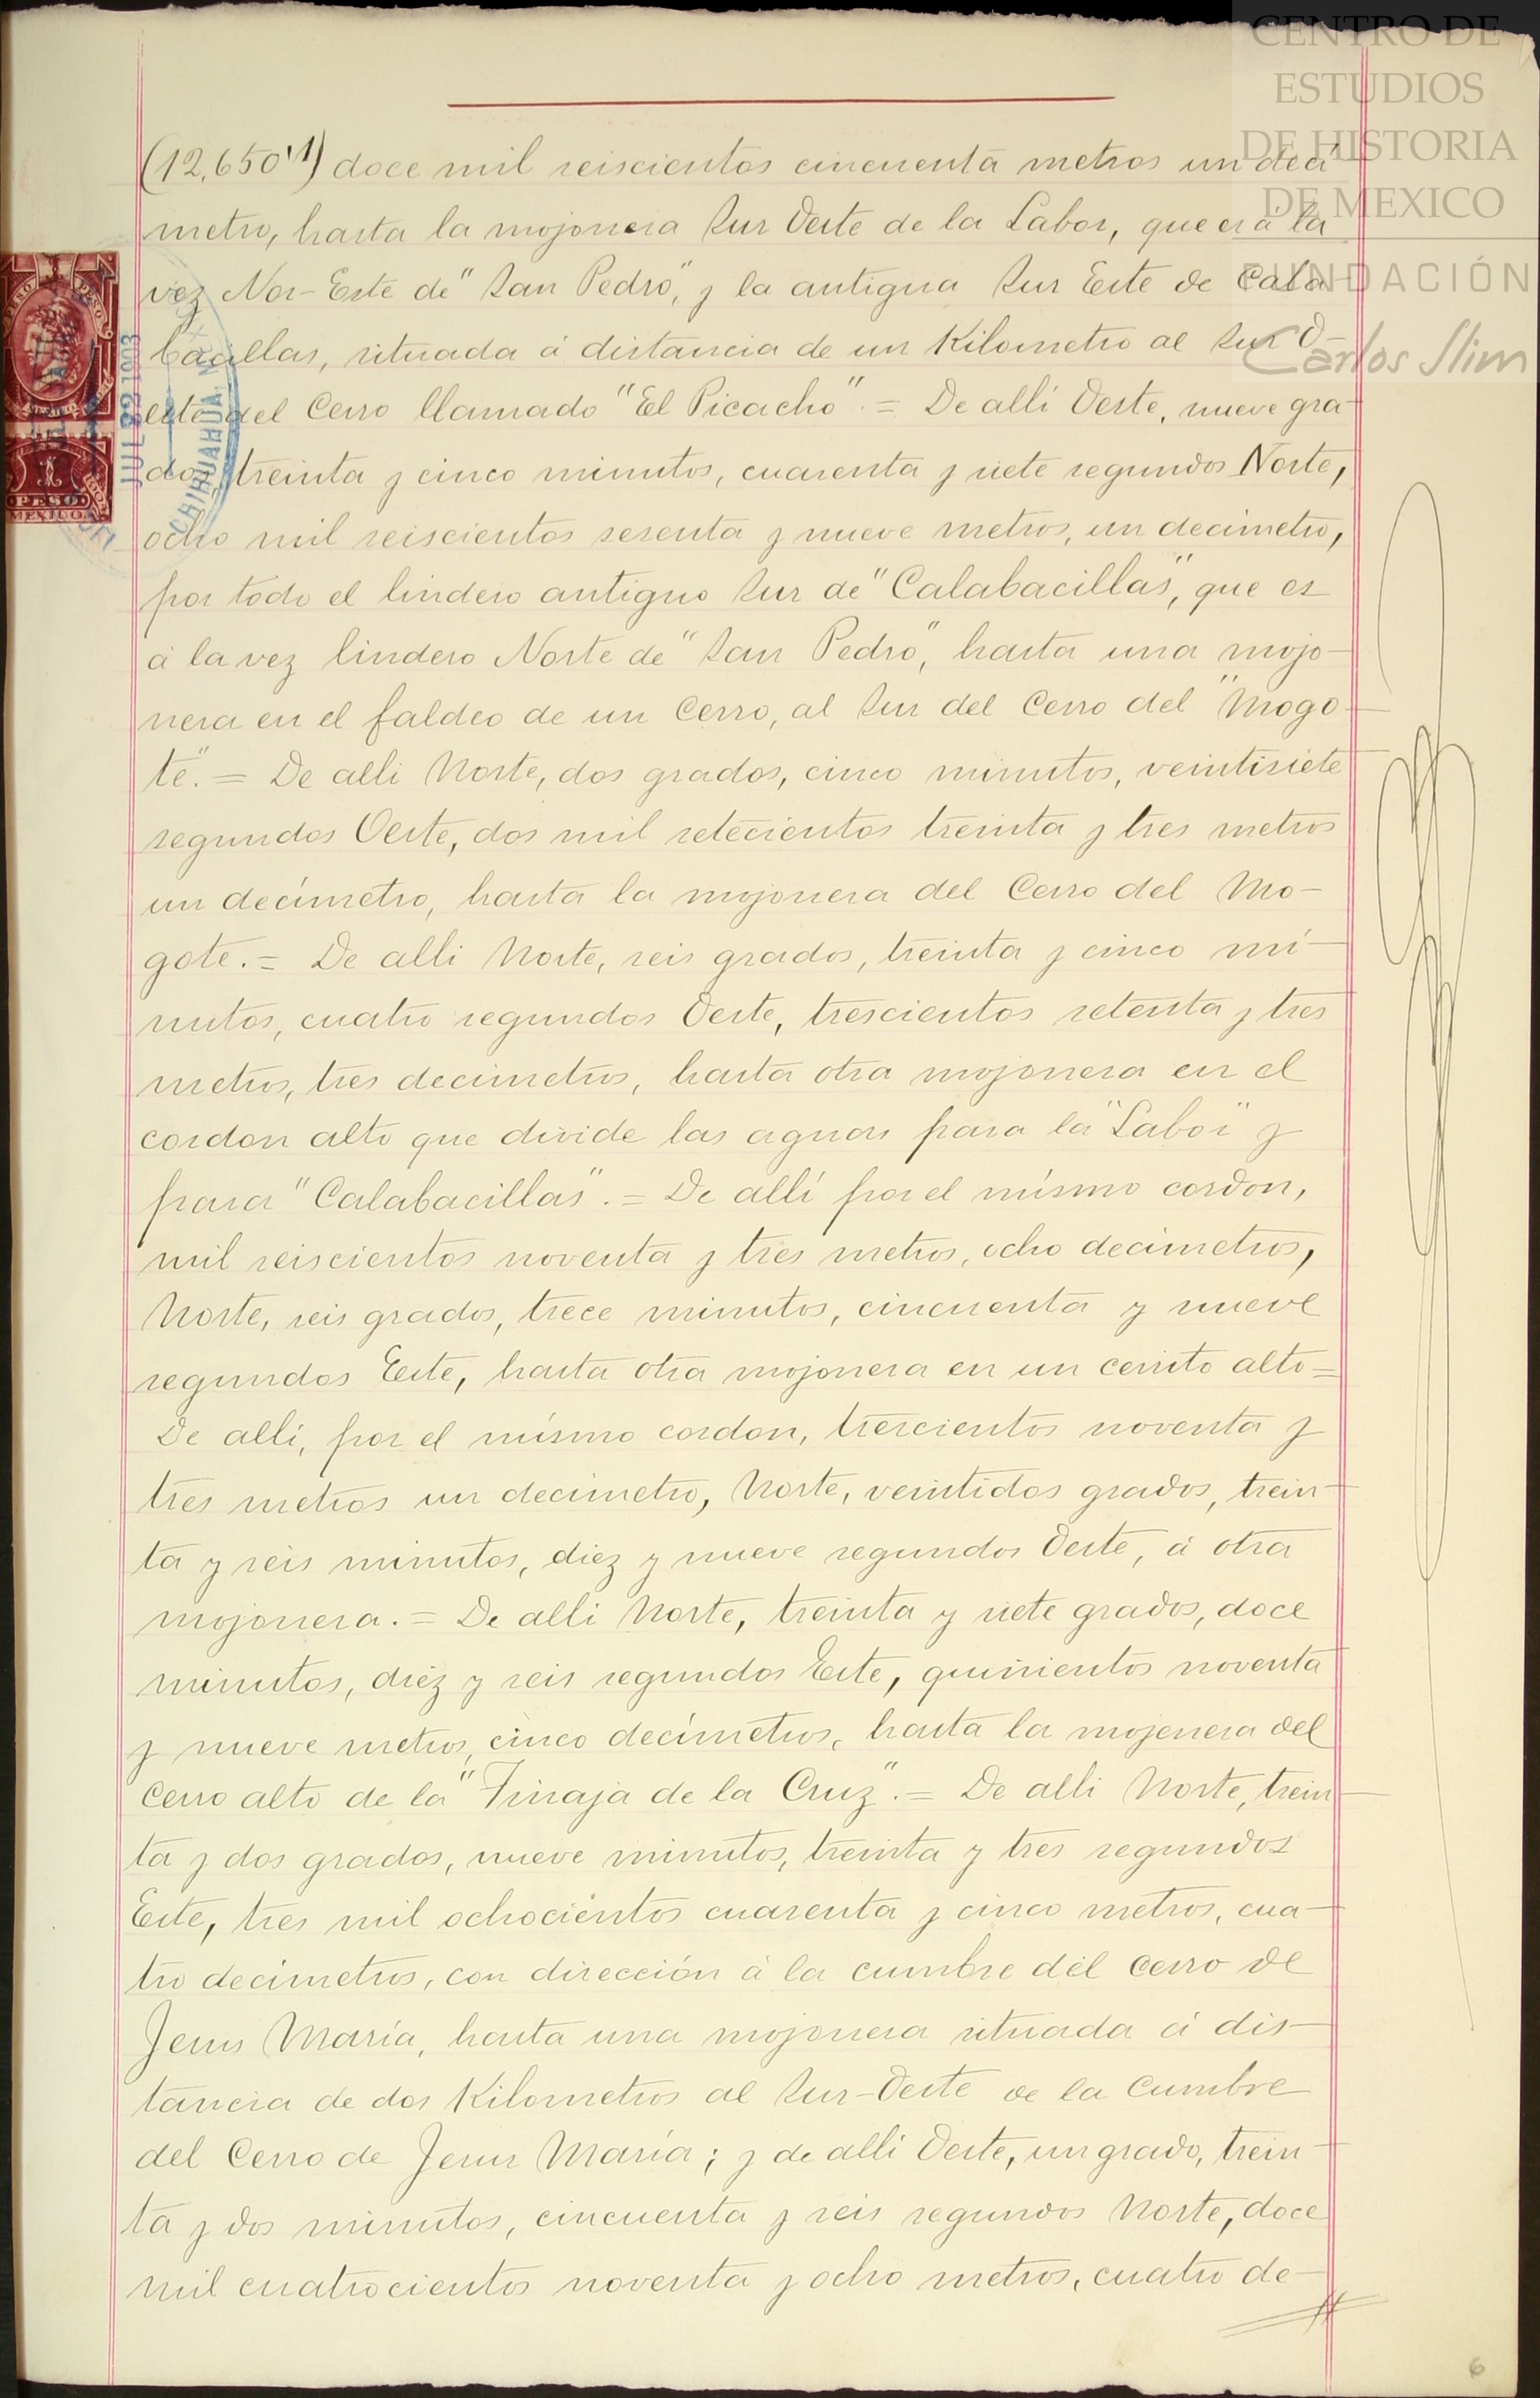 CENTRO DE
ESTUDIOS
DE HISTORIA
DE MEXICO
FUNDACIÓN
Carlos Slim
(12,650'1) doce mil seiscientos cincuenta metros un decí
metro, hasta la mojonera Sur Oeste de la Labor, que es á la
vez Nor-Este de "San Pedro", y la antigua Sur Este de Cala-
bacillas, situada á distancia de un Kilometro al Sur O-
este del Cerro llamado "El Picacho". = De allí Oeste, nueve gra-
dos, treinta y cinco minutos, cuarenta y siete segundos Norte,
ocho mil seiscientos sesenta y nueve metros, un decímetro,
por todo el lindero antiguo Sur de "Calabacillas", que es
á la vez lindero Norte de "San Pedro", hasta una mojo-
nera en el faldeo de un Cerro, al Sur del Cerro del "Mogo-
te". = De alli Norte, dos grados, cinco minutos, veintisiete
segundos Oeste, dos mil setecientos treinta y tres metros
un decímetro, hasta la mojonera del Cerro del Mo-
gote. = De alli Norte, seis grados, treinta y cinco mi-
nutos, cuatro segundos Oeste, trescientos setenta y tres
metros, tres decimetros, hasta otra mojonera en el
cordon alto que divide las aguas para la "Labor" y
para "Calabacillas". = De allí por el mismo cordon,
mil seiscientos noventa y tres metros, ocho decimetros,
Norte, seis grados, trece minutos, cincuenta y nueve
segundos Este, hasta otra mojonera en un cerrito alto =
De allí, por el mismo cordon, trescientos noventa y
tres metros un decimetro, Norte, veintidos grados, trein-
ta y seis minutos, diez y nueve segundos Oeste, á otra
mojonera. = De alli Norte, treinta y siete grados, doce
minutos, diéz y seis segundos Este, quinientos noventa
y nueve metros, cinco decímetros, hasta la mojonera del
Cerro alto de la "Tinaja de la Cruz". = De alli Norte, trein-
ta y dos grados, nueve minutos, treinta y tres segundos
Este, tres mil ochocientos cuarenta y cinco metros, cua-
tro decímetros, con dirección á la cumbre del Cerro de
Jesus María, hasta una mojonera situada á dis-
tancia de dos Kilometros al Sur-Oeste de la Cumbre
del Cerro de Jesus María; y de alli Oeste, un grado, trein-
ta y dos minutos, cincuenta y seis segundos Norte, doce
mil cuatrocientos noventa y ocho metros, cuatro de-
PESO
MEXICO
CHIHUAHUA
6